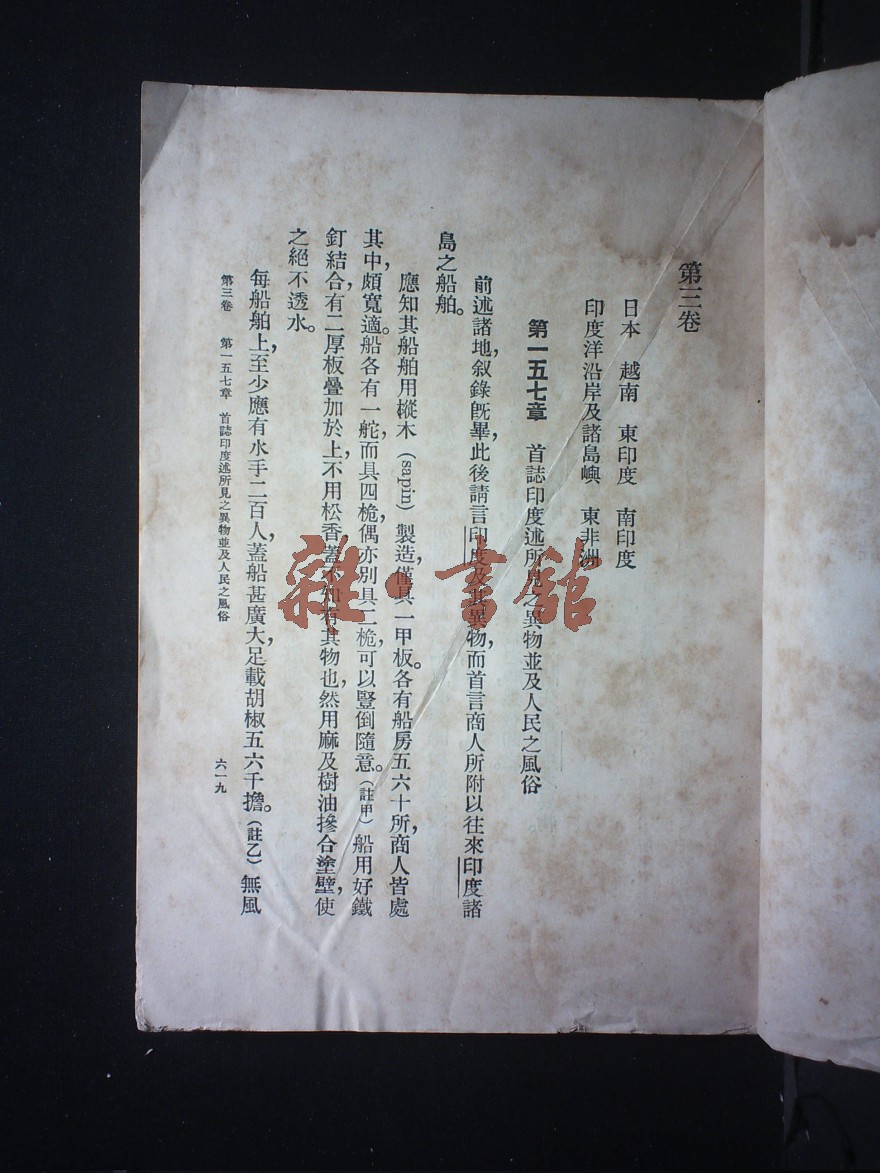 第三卷
日本　越南　東印度　南印度
印度洋沿岸及諸島嶼　東非洲
第一五七章　首誌印度述所見之異物並及人民之風俗
前述諸地，叙錄旣畢，此後請言印度及其異物，而首言商人所附以往來印度諸
島之船舶。
應知其船舶用樅木（sapin）製造，僅具一甲板。各有船房五六十所，商人皆處
其中，頗寬適。船各有一舵，而具四桅，偶亦別具二桅，可以豎倒隨意。（註甲）船用好鐵
釘結合，有二厚板疊加於上，不用松香，蓋不知有其物也，然用麻及樹油摻合塗壁，使
之絕不透水。
每船舶上，至少應有水手二百人，蓋船甚廣大，足載胡椒五六千擔。（註乙）無風
第三卷　第一五七章　首誌印度述所見之異物並及人民之風俗　六一九
雜·書館